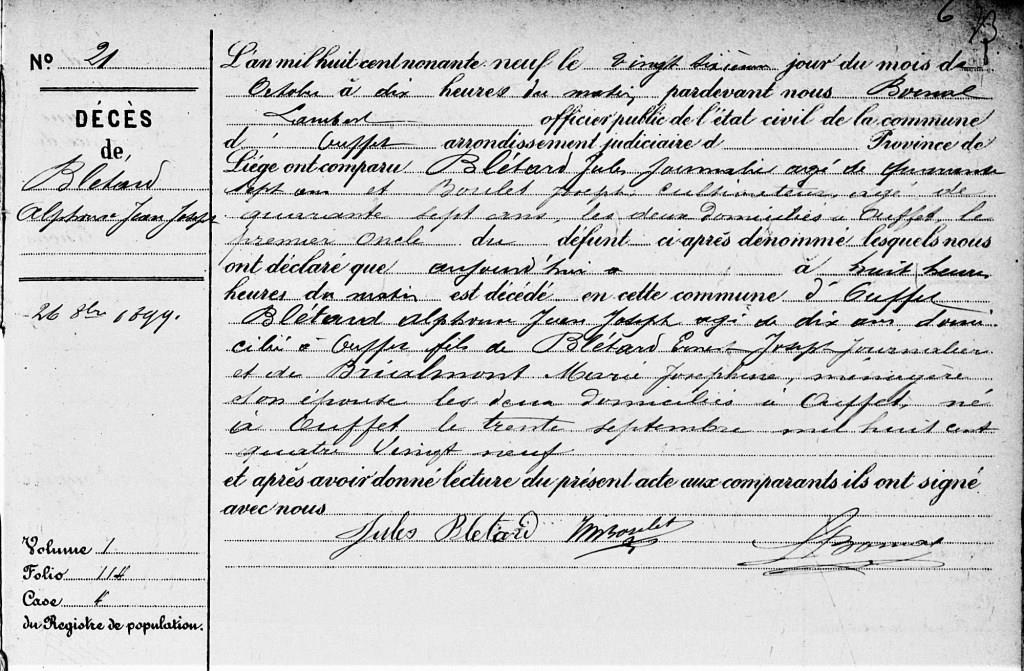 6 13
Nº 21
DÉCÈS
de
Blétard
Alphonse Jean Joseph
26 8bre 1899.
Volume 1
Folio 114
Case 4
du Registre de population.
L'an mil huit cent nonante neuf le vingt sixième jour du mois de
Octobre à dix heures du matin, pardevant nous
Lambert officier public de l'état civil de la commune
d' Ouffet arrondissement judiciaire d Province de
Liége ont comparu Blétard Jules Journalier agé de quarante
sept ans et Boulet Joseph cultivateur, agé de
quarante sept ans, les deux domiciliés à Ouffet, le
premier oncle du défunt ci-après dénommé lesquels nous
ont déclaré que aujourd'hui à huit heures
heures du matin est décédé en cette commune d' Ouffet
Blétard Alphonse Jean Joseph agé de dix ans, domi-
cilié à Ouffet fils de Blétard Ernest Joseph Journalier
et de Brialmont Marie Josephine, menagère
son épouse les deux domiciliés à Ouffet, né
à Ouffet le trente septembre mil huit cent
quatre vingt neuf
et après avoir donné lecture du présent acte aux comparants ils ont signé
avec nous
Jules Blétard Boulet